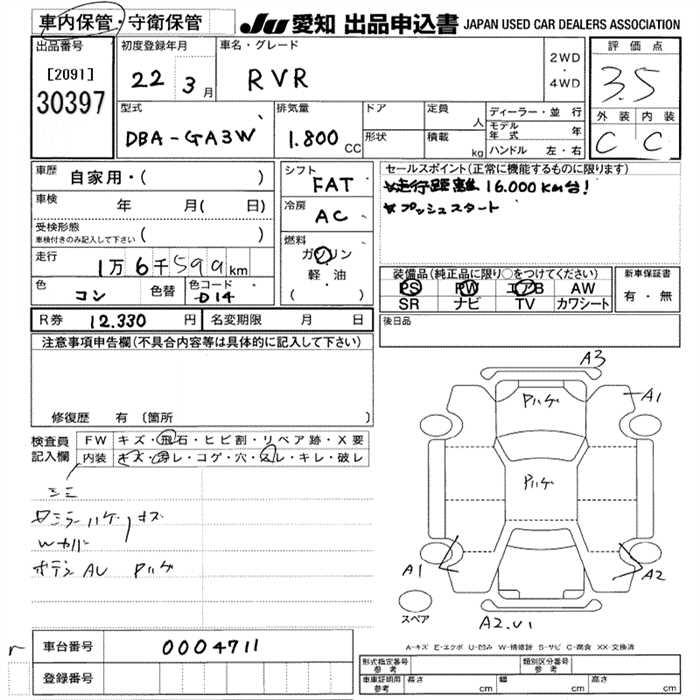 車内保管・守衛保管 JU 愛知 出品申込書 JAPAN USED CAR DEALERS ASSOCIATION
出品番号
[2091]
30397
初度登録年月
22 3月
車名・グレード
RVR
2WD
・
4WD
評価点
3.5
型式
DBA-GA3W
排気量
1.800 CC
ドア
形状
定員 人
積載 kg
ディーラー・並行
モデル年式 年
ハンドル 左・右
外装 内装
C C
車歴 自家用・( )
車検 年 月( 日)
受検形態
車検付きのみ記入して下さい ( )
走行 1万6千599km
色 コン
色替
色コード D14
シフト FAT
冷房 AC
燃料
ガソリン
軽・油
( )
セールスポイント(正常に機能するものに限ります)
☆走行距離 16.000km台!
☆プッシュスタート
装備品(純正品に限り○をつけてください)
PS PW エアB AW
SR ナビ TV カワシート
新車保証書
有・無
R券 12.330 円 名変期限 月 日
後日品
注意事項申告欄(不具合内容等は具体的に記入して下さい)
修復歴 有 〔箇所 〕
検査員記入欄
FW キズ・飛石・ヒビ割・リペア跡・X要
内装 キズ・汚レ・コゲ・穴・スレ・キレ・破レ
シミ
ハケ キズ
Wカバ
Pハゲ
A3
A1
Pハゲ
Pハゲ
A1
A2
スペア
A2.U1
r
車台番号 0004711
登録番号
A-キズ E-エクボ U-凹み W-補修跡 S-サビ C-腐食 XX-交換済
形式指定番号 参考 類別区分番号 参考
車車証明用 参考 長さ cm 幅 cm 高さ cm